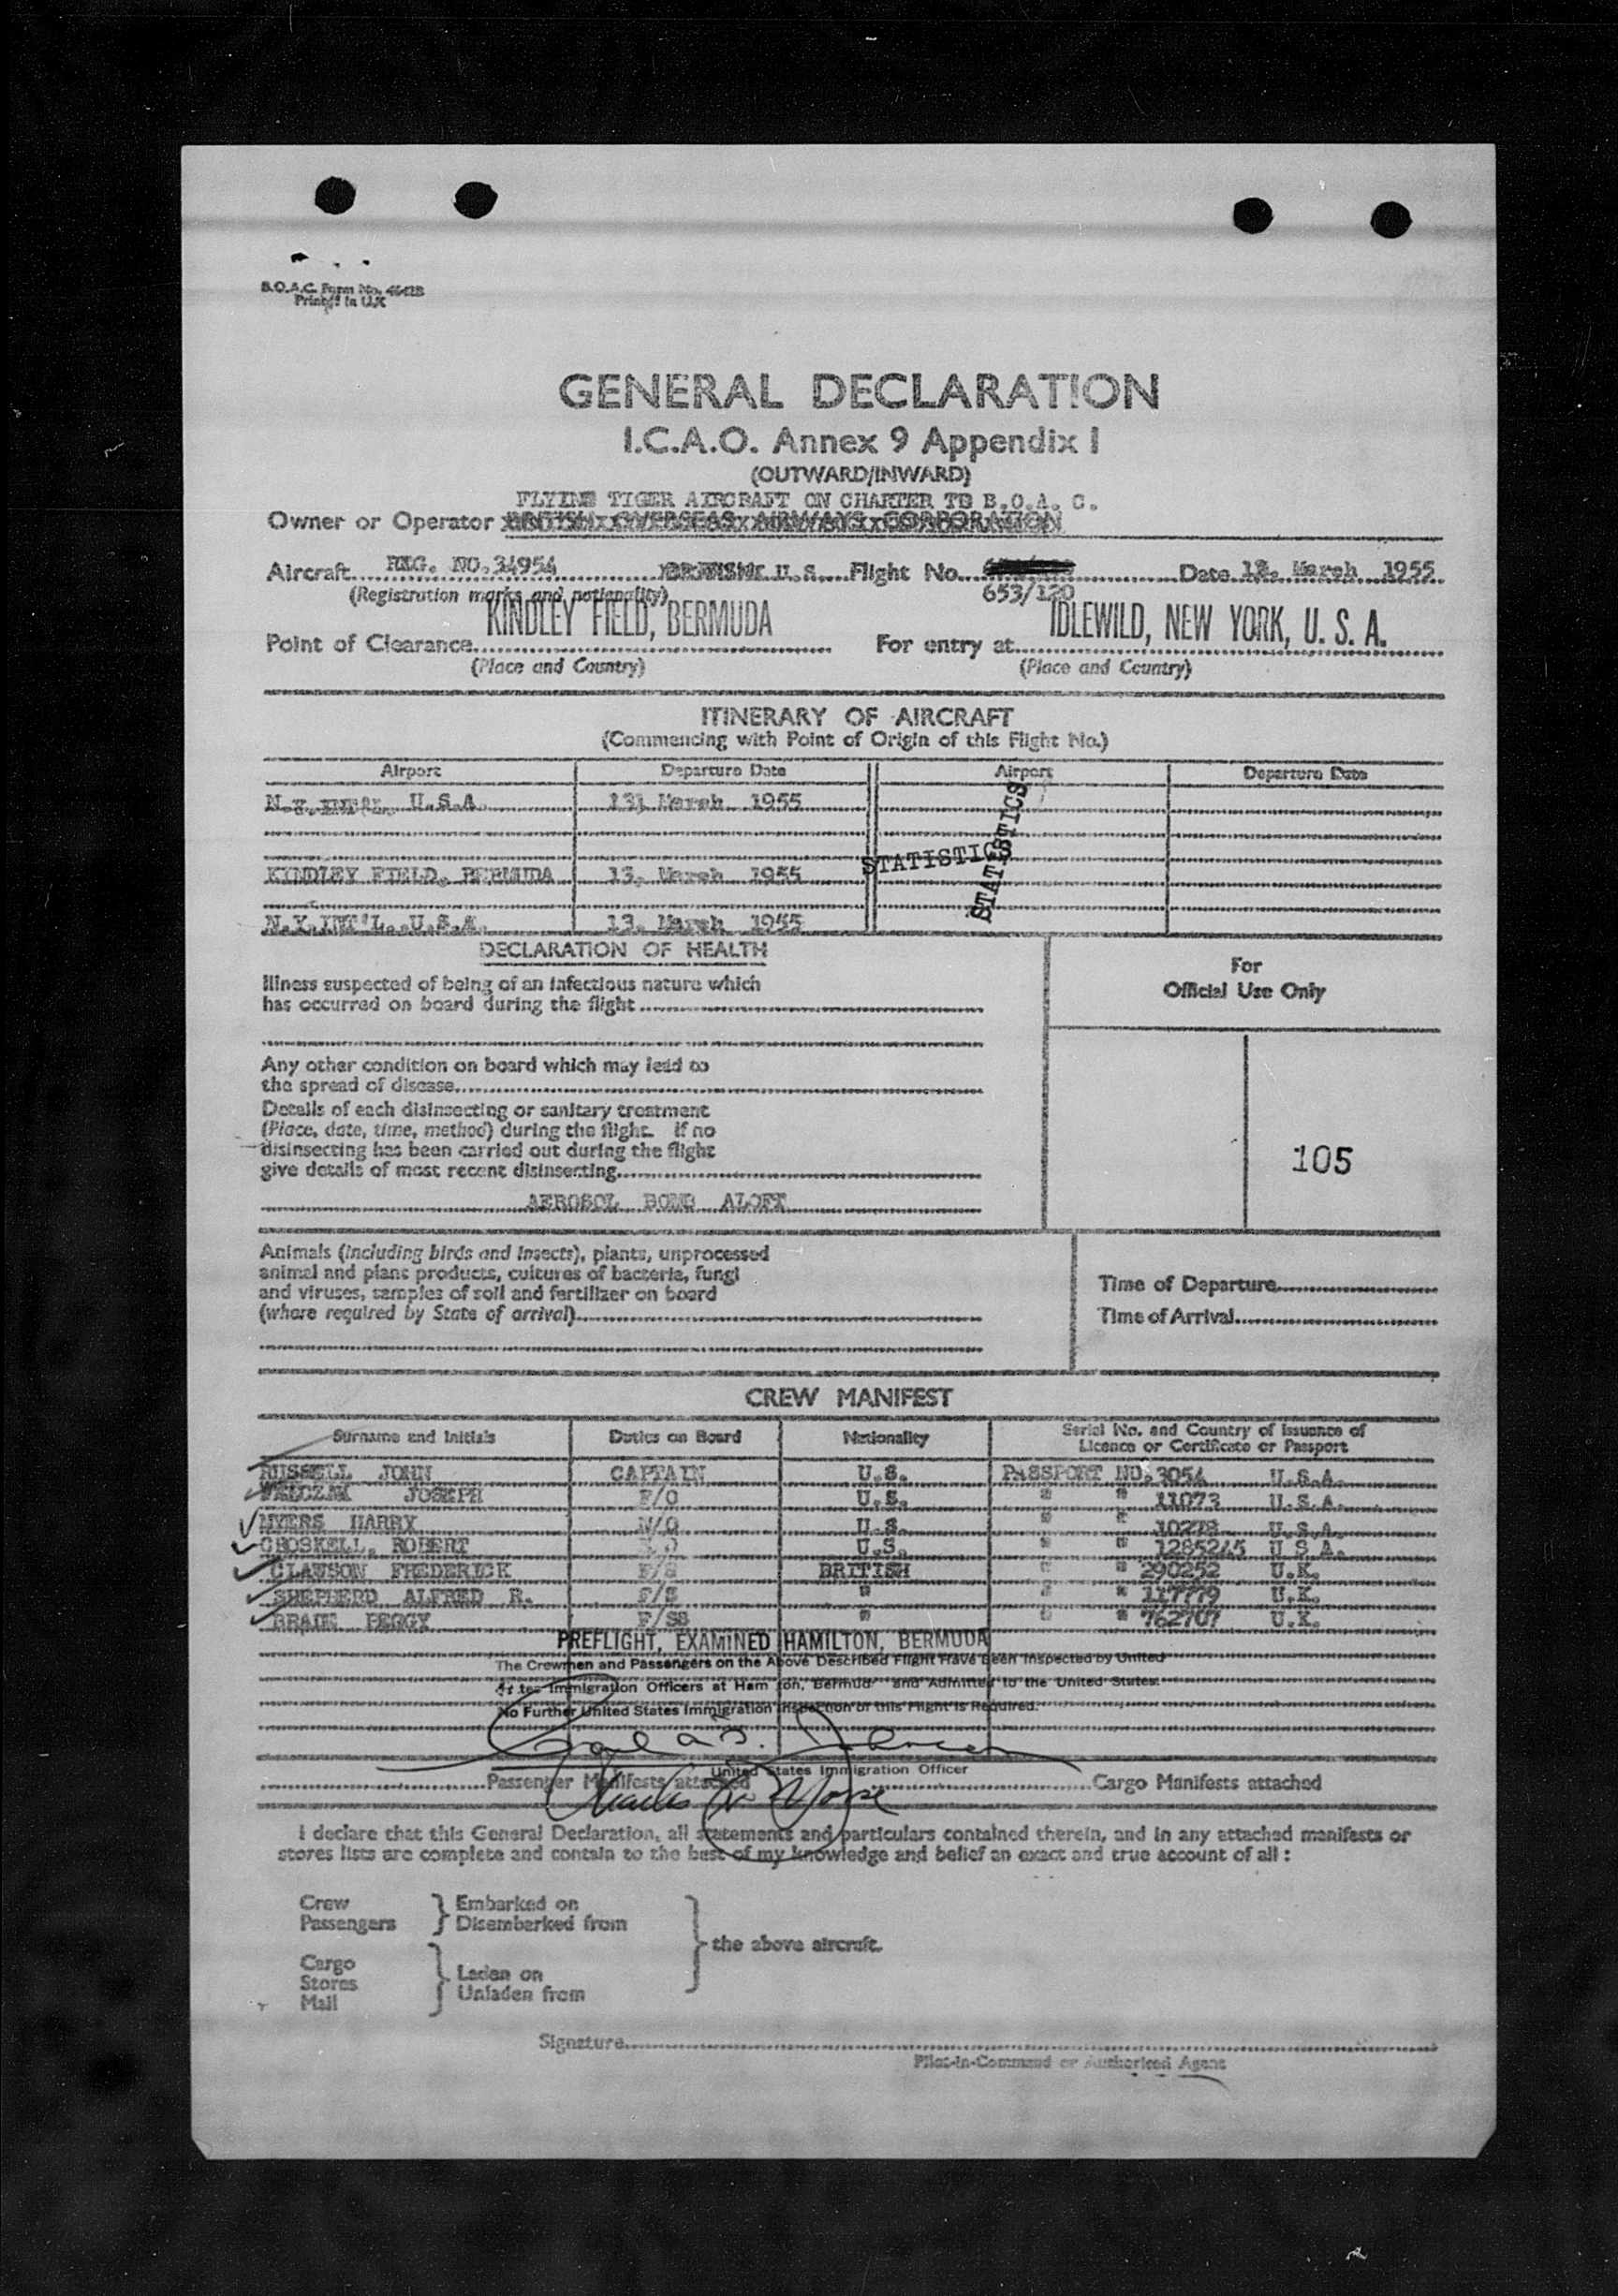 B.O.A.C. Form No.
Printed in U.K
GENERAL DECLARATION
I.C.A.O. Annex 9 Appendix I
(OUTWARD/INWARD)
FLYING TIGER AIRCRAFT ON CHARTER TO B.O.A. C.
Owner or Operator BRITISH OVERSEAS AIRWAYS CORPORATION
Aircraft REG. NO.34954 BRITISH U.S. Flight No. Date 13. March 1955
(Registration marks and nationality) 653/120
KINDLEY FIELD, BERMUDA IDLEWILD, NEW YORK, U. S. A.
Point of Clearance For entry at
(Place and Country) (Place and Country)
ITINERARY OF AIRCRAFT
(Commencing with Point of Origin of this Flight No.)
Airport Departure Date Airport Departure Date
N.Y.INT'L. U.S.A. 13, March 1955
STATISTICS
STATISTICS
KINDLEY FIELD, BERMUDA 13. March 1955
N.Y.INT'L..U.S.A. 13. March 1955
DECLARATION OF HEALTH
For
Official Use Only
Illness suspected of being of an infectious nature which
has occurred on board during the flight
Any other condition on board which may lead to
the spread of disease
Details of each disinsecting or sanitary treatment
(Place, date, time, method) during the flight. If no
disinsecting has been carried out during the flight
give details of most recent disinsecting
105
AEROSOL BOMB ALOFT
Animals (including birds and insects), plants, unprocessed
animal and plant products, cultures of bacteria, fungi
and viruses, samples of soil and fertilizer on board
(where required by State of arrival)
Time of Departure
Time of Arrival
CREW MANIFEST
Surname and Initials Duties on Board Nationality Serial No. and Country of Issuance of
Licence or Certificate or Passport
RUSSELL JOHN CAPTAIN U.S. PASSPORT NO.3054 U.S.A.
WALCZAK JOSEPH F/O U.S. " " 11073 U.S.A.
MYERS HARRY N/O U.S. " " 10278 U.S.A.
CROSKELL, ROBERT U.S. " " 1285245 U S A.
CLAWSON FREDERICK F/S BRITISH " " 290252 U.K.
SHEPHERD ALFRED R. F/S " " " 117779 U.K.
BRAIN PEGGY F/SS " " " 762707 U.K.
PREFLIGHT, EXAMINED HAMILTON, BERMUDA
The Crewmen and Passengers on the Above Described Flight Have Been Inspected by United
States Immigration Officers at Hamilton, Bermuda and Admitted to the United States.
No Further United States Immigration Inspection of this Flight is Required.
United States Immigration Officer
Passenger Manifests attached Cargo Manifests attached
I declare that this General Declaration, all statements and particulars contained therein, and in any attached manifests or
stores lists are complete and contain to the best of my knowledge and belief an exact and true account of all :
Crew Embarked on
Passengers Disembarked from
the above aircraft.
Cargo Laden on
Stores Unladen from
Mail
Signature
Pilot-in-Command or Authorised Agent